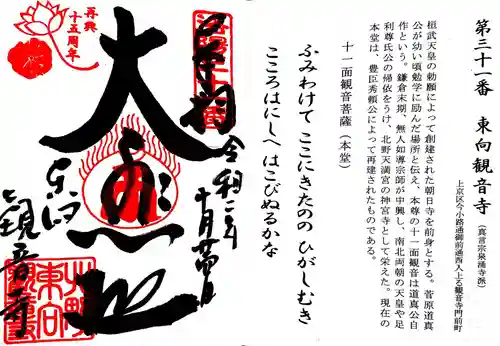 第三十一番 東向観音寺（真言宗泉涌寺派）
上京区今小路通御前通西入上る観音寺門前町
桓武天皇の勅願によって創建された朝日寺を前身とする。菅原道真
公が幼い頃勉学に励んだ場所と伝え、本尊の十一面観音は道真公自
作という。鎌倉末期、無人如導宗師が中興し、南北両朝の天皇や足
利尊氏公の帰依をうけ、北野天満宮の神宮寺として栄えた。現在の
本堂は、豊臣秀頼公によって再建されたものである。
十一面観音菩薩（本堂）
ふみわけて ここにきたのの ひがしむき
こころはにしへ はこびぬるかな
奉拝
令和二年
十月廿四日
大悲殿
東向
観音寺
再興
十五周年